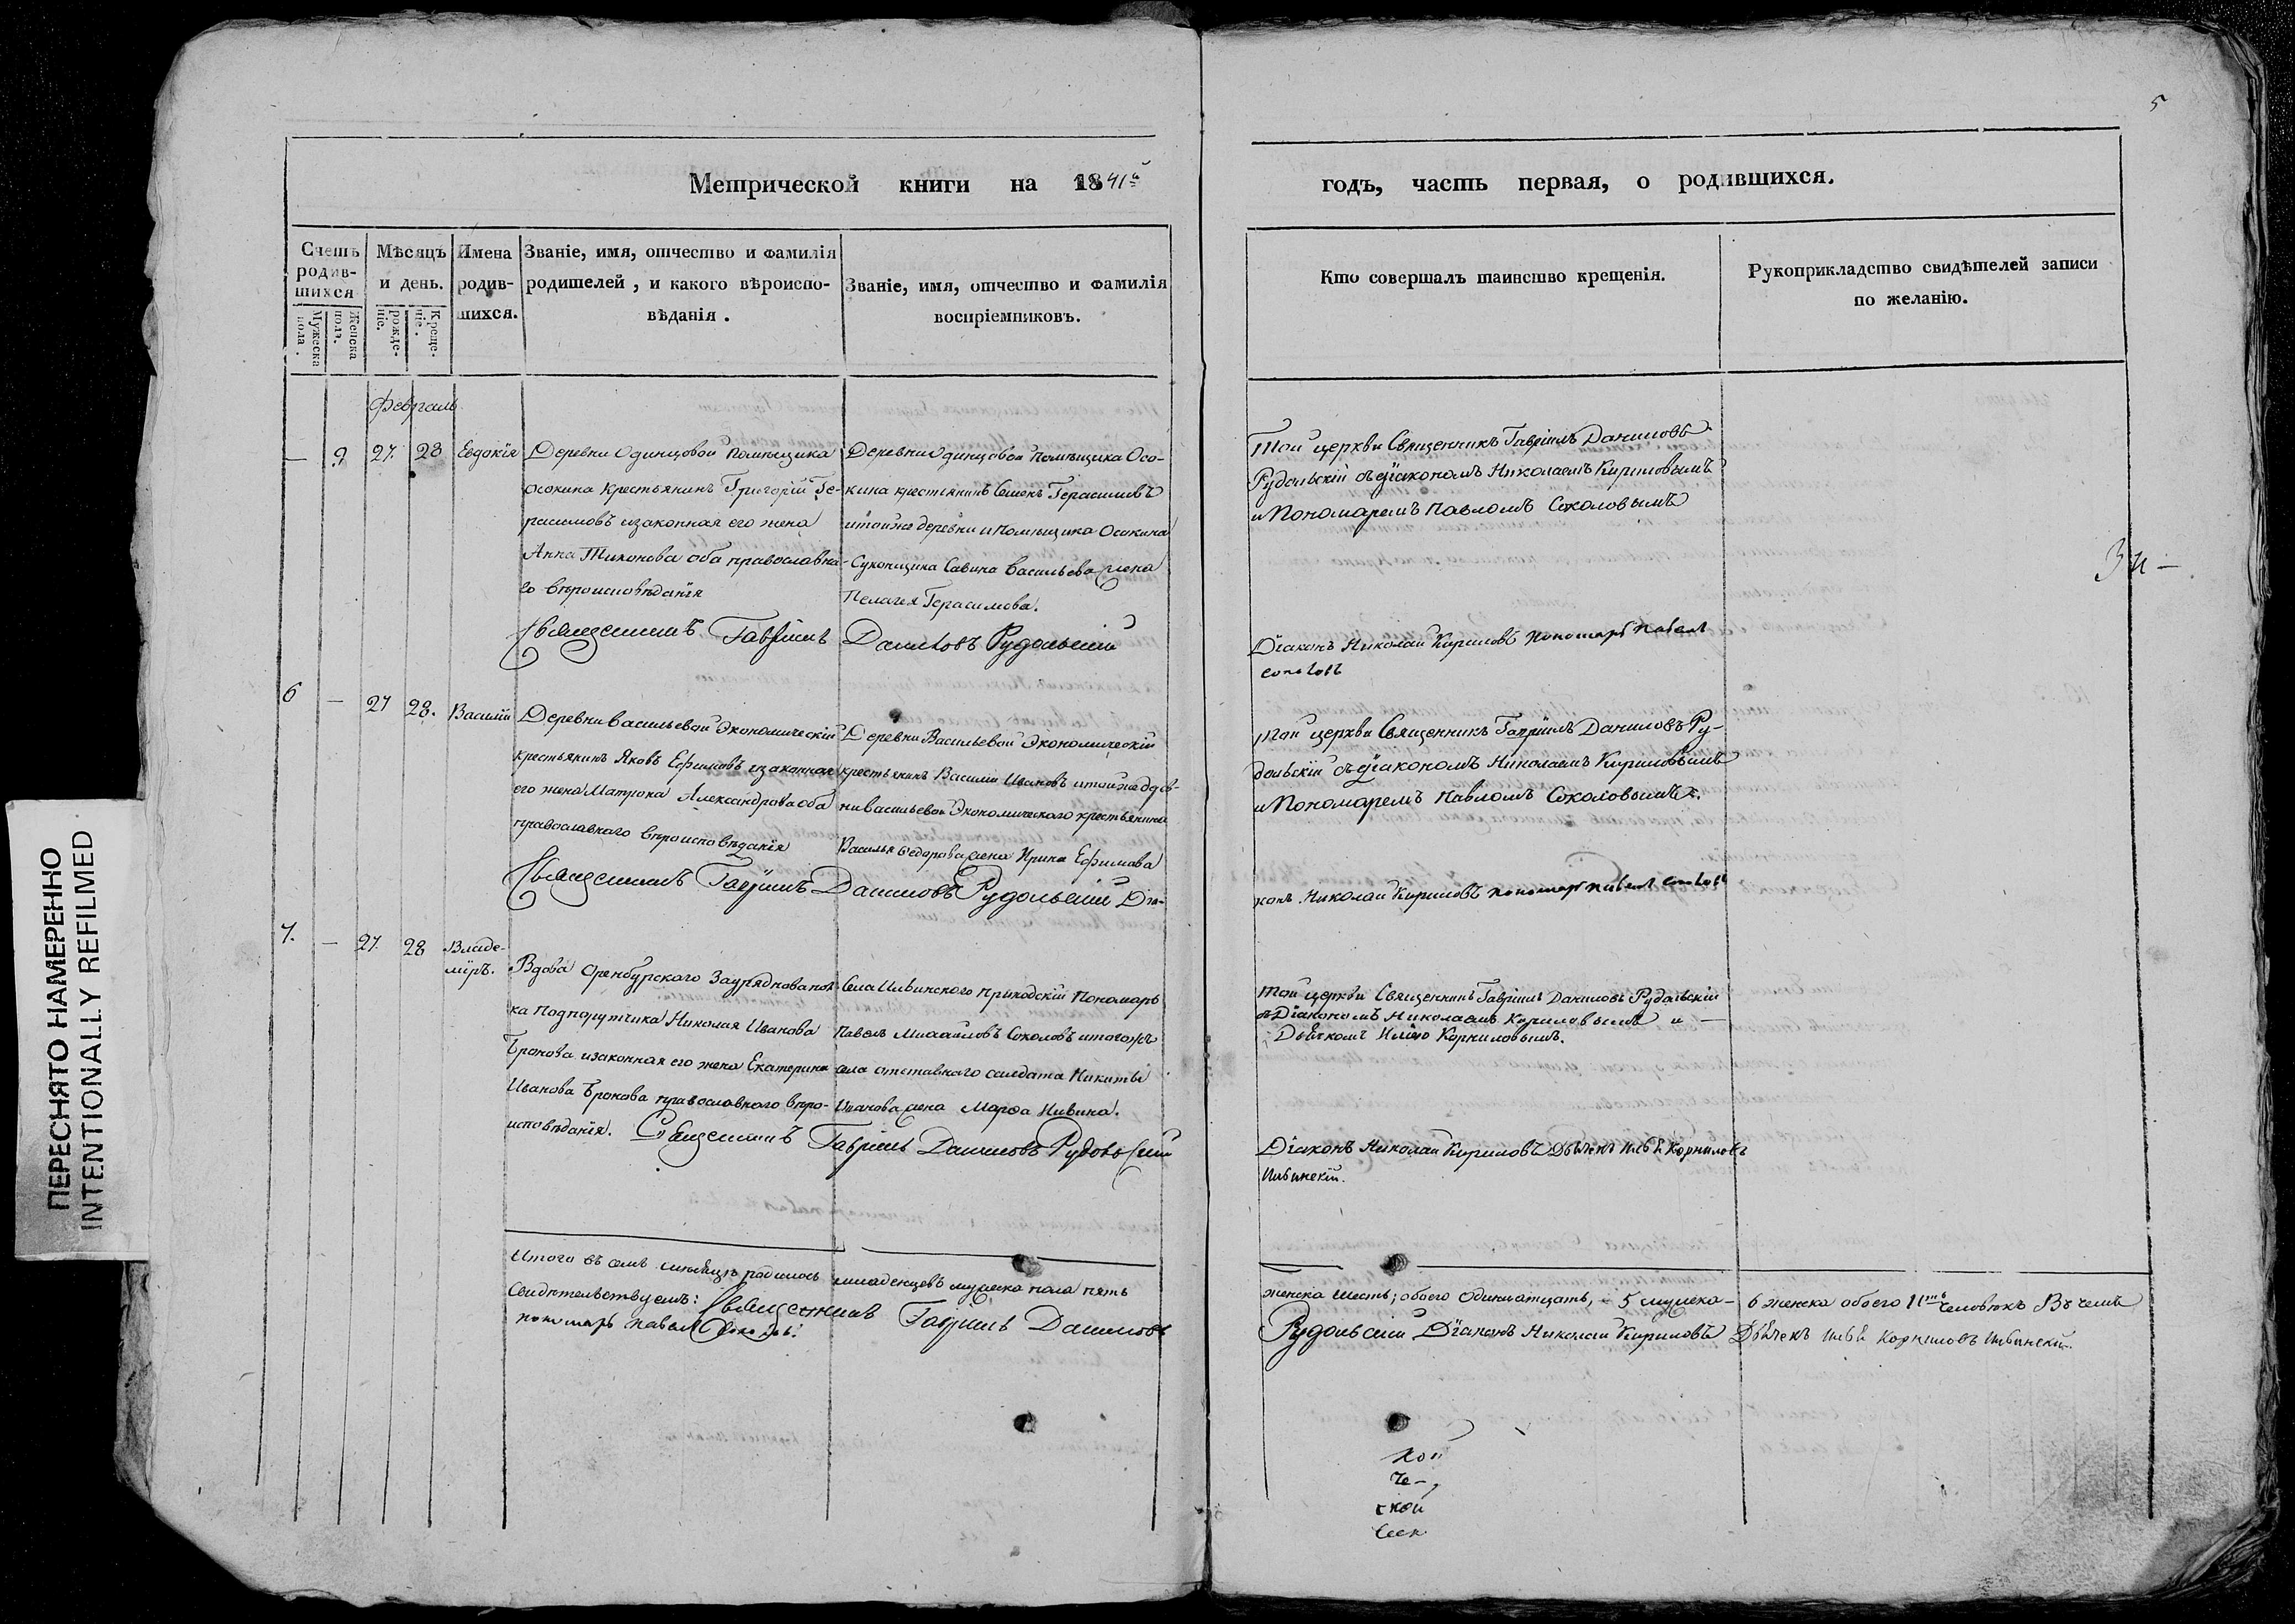 5
Метрической книги на 1841й
годъ, часть первая, о родившихся.
Счетъ родив-шихся
Мужеска пола.
Женска пола.
Мѣсяцъ и день.
рожде-ніе.
Креще-ніе.
Имена родив-шихся.
Званіе, имя, отчество и фамилія
родителей, и какого вѣроиспо-
вѣданія.
Званіе, имя, отчество и фамилія
воспріемниковъ.
Кто совершалъ таинство крещенія.
Рукоприкладство свидѣтелей записи
по желанію.
Февраль
— 9 27. 28 Евдокія
Деревни Одинцовой помѣщика
Осокина крестьянинъ Григорій Ге-
расимовъ изаконная его жена
Анна Тихонова оба православна-
го вѣроисповѣданія
Деревни Одинцовой помѣщика Осо-
кина крестьянинъ Семенъ Герасимовъ
итойже деревни и помѣщика Осокина
Суконщика Савина Васильева жена
Пелагея Герасимова.
Священникъ Гавріилъ Даниловъ Рудольскій
Той церкви Священникъ Гавріилъ Даниловъ
Рудольскій съ діакономъ Николаемъ Кириловымъ
и Пономаремъ Павломъ Соколовымъ
Діаконъ Николай Кириловъ пономарь Павелъ
Соколовъ
6 — 27 28. Василій
Деревни Васильевой Экономическій
крестьянинъ Яковъ Ефимовъ изаконная
его жена Матрона Александрова оба
православнаго вѣроисповѣданія
Деревни Васильевой Экономическій
крестьянинъ Василій Ивановъ итойже дерев-
ни Васильевой Экономическаго крестьянина
Василья Ѳедорова жена Ирина Ефимова
Священникъ Гавріилъ Даниловъ Рудольскій Діа-
Той церкви Священникъ Гавріилъ Даниловъ Ру-
дольскій съ діакономъ Николаемъ Кириловымъ
и Пономаремъ Павломъ Соколовымъ.
конъ Николай Кириловъ пономарь Павелъ Соколовъ
7. — 27. 28 Владе-
міръ.
Вдова Оренбурского
ка Подпорутчика Николая Иванова
изаконная его жена Екатерина
Иванова православнаго вѣро-
исповѣданія.
Села Ильинского приходскій Пономарь
Павелъ Михайловъ Соколовъ итогожъ
села отставнаго солдата Никиты
Иванова жена Марѳа
Священникъ Гавріилъ Даниловъ Рудольскій
Той церкви Священникъ Гавріилъ Даниловъ Рудольскій
съ Діакономъ Николаемъ Кириловымъ и —
Дьячкомъ Ильею Корниловымъ.
Діаконъ Николай Кириловъ Дьячекъ Илья Корниловъ
Ильинскій.
Итого въ семъ мѣсяцѣ родилось младенцевъ мужеска пола пять
женска шесть; обоего одиннатцать, — 5 мужеска — 6 женска обоего 11ть человѣкъ Въ чемъ
Свидѣтельствуемъ: Священникъ Гавріилъ Даниловъ
Рудольскій Діаконъ Николай Кириловъ Дьячекъ Илья Корниловъ Ильинскій.
пономарь Павелъ Соколовъ.
кой
че-
ской
ПЕРЕСНЯТО НАМЕРЕННО
INTENTIONALLY REFILMED